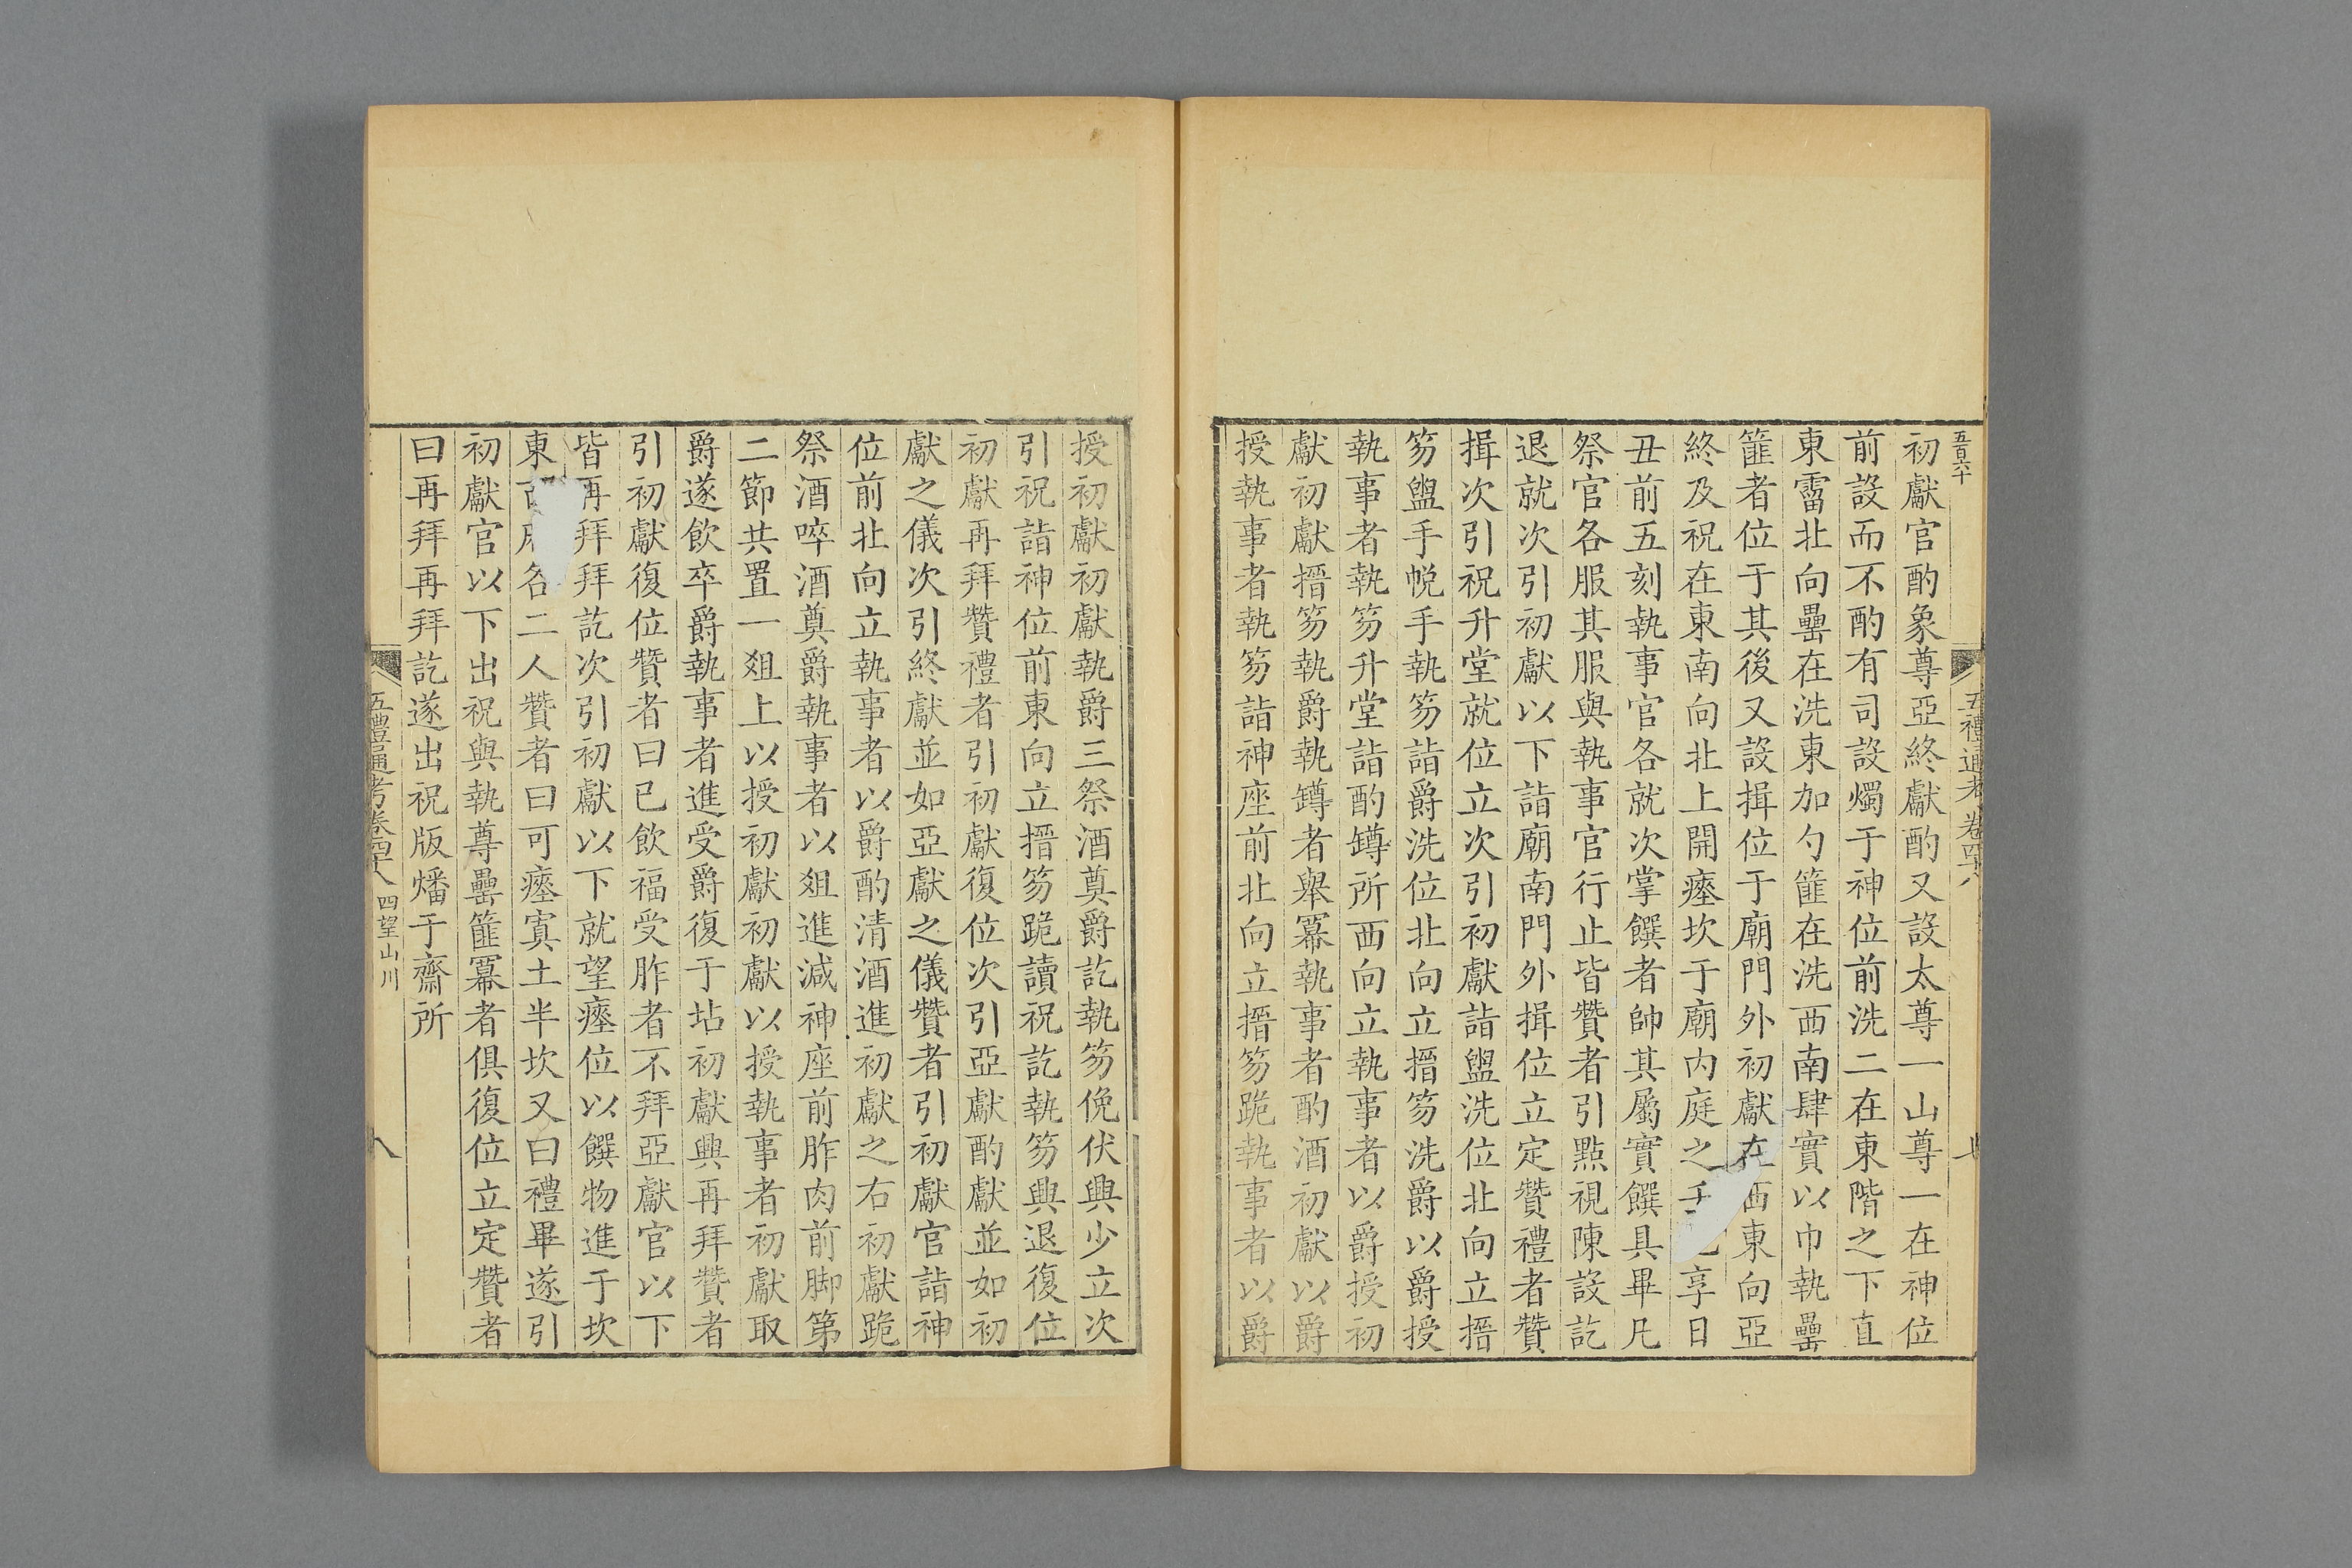 五百六十
五禮通考卷四十八
初獻官酌象尊亞終獻酌又設太尊一山尊一在神位
前設而不酌有司設燭于神位前洗二在東階之下直
東霤北向罍在洗東加勺篚在洗西南肆實以巾執罍
篚者位于其後又設揖位于廟門外初獻在西東向亞
終及祝在東南向北上開瘞坎于廟內庭之壬地享日
丑前五刻執事官各就次掌饌者帥其屬實饌具畢凡
祭官各服其服與執事官行止皆贊者引點視陳設訖
退就次引初獻以下詣廟南門外揖位立定贊禮者贊
揖次引祝升堂就位立次引初獻詣盥洗位北向立搢
笏盥手帨手執笏詣爵洗位北向立搢笏洗爵以爵授
執事者執笏升堂詣酌罇所西向立執事者以爵授初
獻初獻搢笏執爵執罇者舉冪執事者酌酒初獻以爵
授執事者執笏詣神座前北向立搢笏跪執事者以爵
授初獻初獻執爵三祭酒奠爵訖執笏俛伏興少立次
引祝詣神位前東向立搢笏跪讀祝訖執笏興退復位
初獻再拜贊禮者引初獻復位次引亞獻酌獻並如初
獻之儀次引終獻並如亞獻之儀贊者引初獻官詣神
位前北向立執事者以爵酌清酒進初獻之右初獻跪
祭酒啐酒奠爵執事者以俎進減神座前胙肉前脚第
二節共置一俎上以授初獻初獻以授執事者初獻取
爵遂飲卒爵執事者進受爵復于坫初獻興再拜贊者
引初獻復位贊者曰已飲福受胙者不拜亞獻官以下
皆再拜拜訖次引初獻以下就望瘞位以饌物進于坎
東 二人贊者曰可瘞寘土半坎又曰禮畢遂引
初獻官以下出祝與執尊罍篚冪者俱復位立定贊者
曰再拜再拜訖遂出祝版燔于齋所
五禮通考卷四十八 四望山川 八